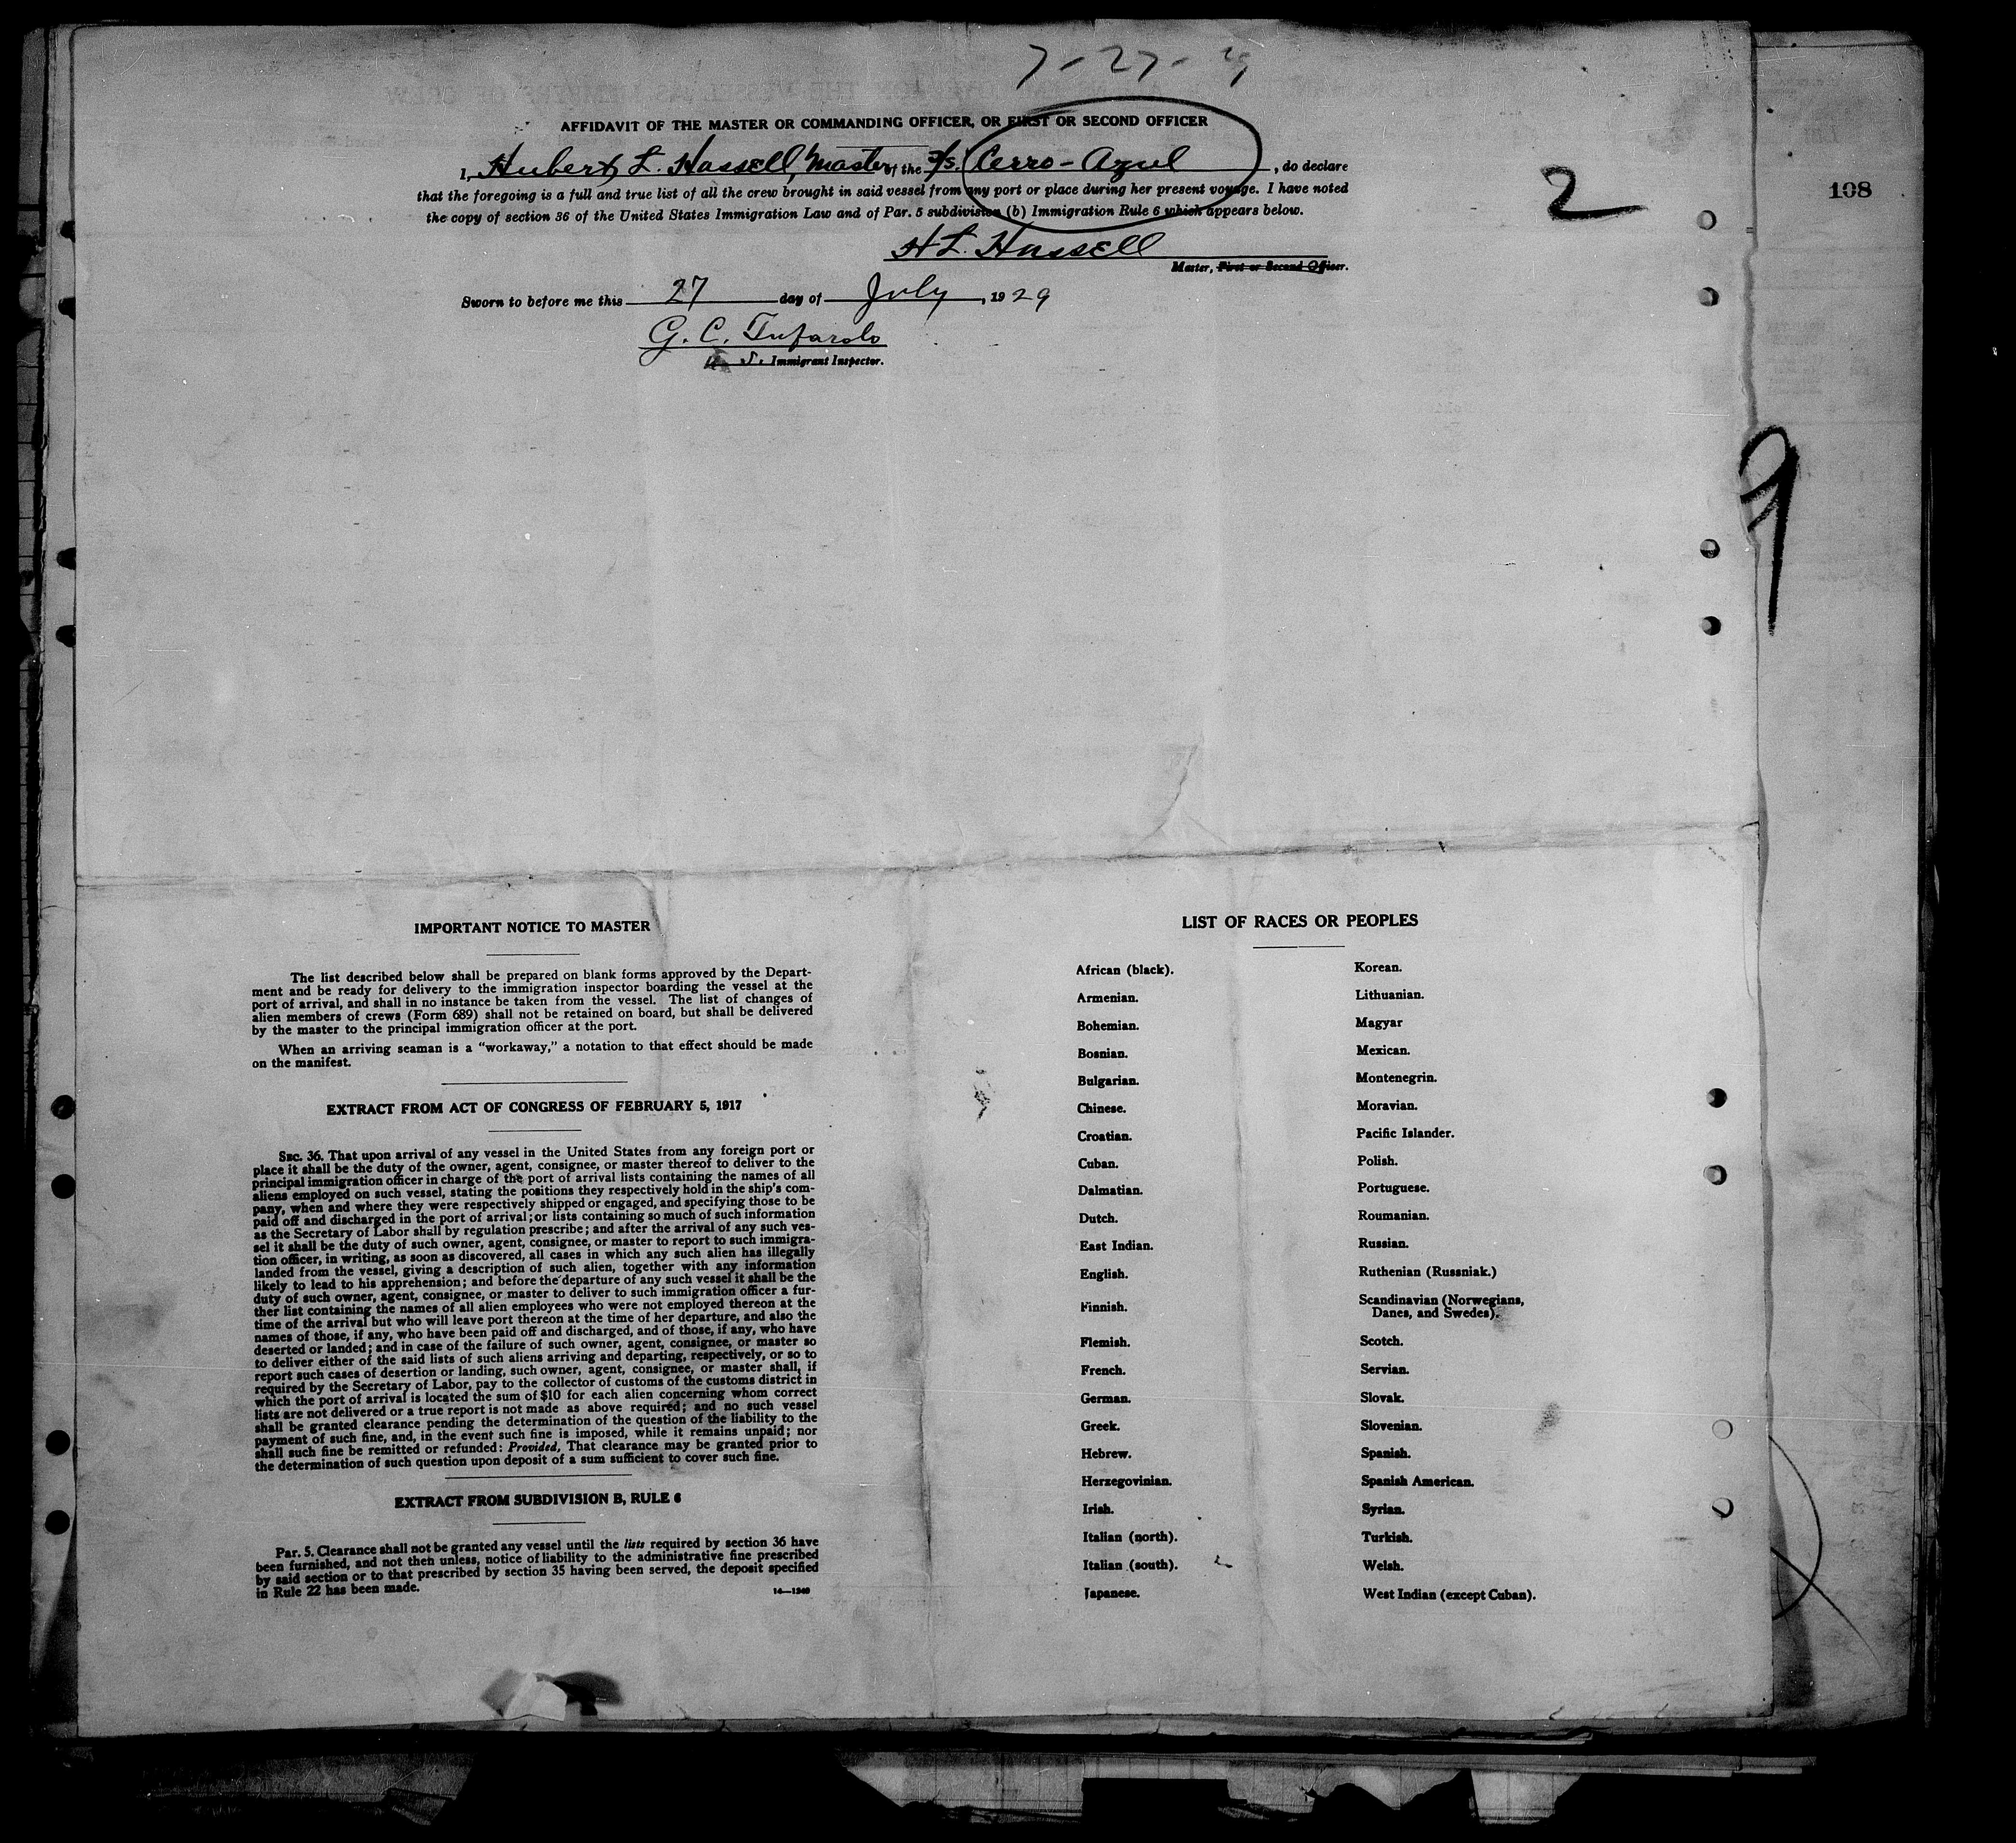 7-27-29
AFFIDAVIT OF THE MASTER OR COMMANDING OFFICER, OR FIRST OR SECOND OFFICER
I, Hubert L. Hassell, Master of the S/S. Cerro-Azul, do declare
that the foregoing is a full and true list of all the crew brought in said vessel from any port or place during her present voyage. I have noted
the copy of section 36 of the United States Immigration Law and of Par. 5 subdivision (b) Immigration Rule 6 which appears below.
2
108
H L. Hassell
Master, First or Second Officer.
Sworn to before me this 27 day of July, 1929
G. C. Tufarolo
U. S. Immigrant Inspector.
9
IMPORTANT NOTICE TO MASTER
The list described below shall be prepared on blank forms approved by the Depart-
ment and be ready for delivery to the immigration inspector boarding the vessel at the
port of arrival, and shall in no instance be taken from the vessel. The list of changes of
alien members of crews (Form 689) shall not be retained on board, but shall be delivered
by the master to the principal immigration officer at the port.
When an arriving seaman is a "workaway," a notation to that effect should be made
on the manifest.
EXTRACT FROM ACT OF CONGRESS OF FEBRUARY 5, 1917
SEC. 36. That upon arrival of any vessel in the United States from any foreign port or
place it shall be the duty of the owner, agent, consignee, or master thereof to deliver to the
principal immigration officer in charge of the port of arrival lists containing the names of all
aliens employed on such vessel, stating the positions they respectively hold in the ship's com-
pany, when and where they were respectively shipped or engaged, and specifying those to be
paid off and discharged in the port of arrival; or lists containing so much of such information
as the Secretary of Labor shall by regulation prescribe; and after the arrival of any such ves-
sel it shall be the duty of such owner, agent, consignee, or master to report to such immigra-
tion officer, in writing, as soon as discovered, all cases in which any such alien has illegally
landed from the vessel, giving a description of such alien, together with any information
likely to lead to his apprehension; and before the departure of any such vessel it shall be the
duty of such owner, agent, consignee, or master to deliver to such immigration officer a fur-
ther list containing the names of all alien employees who were not employed thereon at the
time of the arrival but who will leave port thereon at the time of her departure, and also the
names of those, if any, who have been paid off and discharged, and of those, if any, who have
deserted or landed; and in case of the failure of such owner, agent, consignee, or master so
to deliver either of the said lists of such aliens arriving and departing, respectively, or so to
report such cases of desertion or landing, such owner, agent, consignee, or master shall, if
required by the Secretary of Labor, pay to the collector of customs of the customs district in
which the port of arrival is located the sum of $10 for each alien concerning whom correct
lists are not delivered or a true report is not made as above required; and no such vessel
shall be granted clearance pending the determination of the question of the liability to the
payment of such fine, and, in the event such fine is imposed, while it remains unpaid; nor
shall such fine be remitted or refunded: Provided, That clearance may be granted prior to
the determination of such question upon deposit of a sum sufficient to cover such fine.
EXTRACT FROM SUBDIVISION B, RULE 6
Par. 5. Clearance shall not be granted any vessel until the lists required by section 36 have
been furnished, and not then unless, notice of liability to the administrative fine prescribed
by said section or to that prescribed by section 35 having been served, the deposit specified
in Rule 22 has been made.
14—1240
LIST OF RACES OR PEOPLES
African (black).
Armenian.
Bohemian.
Bosnian.
Bulgarian.
Chinese.
Croatian.
Cuban.
Dalmatian.
Dutch.
East Indian.
English.
Finnish.
Flemish.
French.
German.
Greek.
Hebrew.
Herzegovinian.
Irish.
Italian (north).
Italian (south).
Japanese.
Korean.
Lithuanian.
Magyar
Mexican.
Montenegrin.
Moravian.
Pacific Islander.
Polish.
Portuguese.
Roumanian.
Russian.
Ruthenian (Russniak.)
Scandinavian (Norwegians,
Danes, and Swedes).
Scotch.
Servian.
Slovak.
Slovenian.
Spanish.
Spanish American.
Syrian.
Turkish.
Welsh.
West Indian (except Cuban).